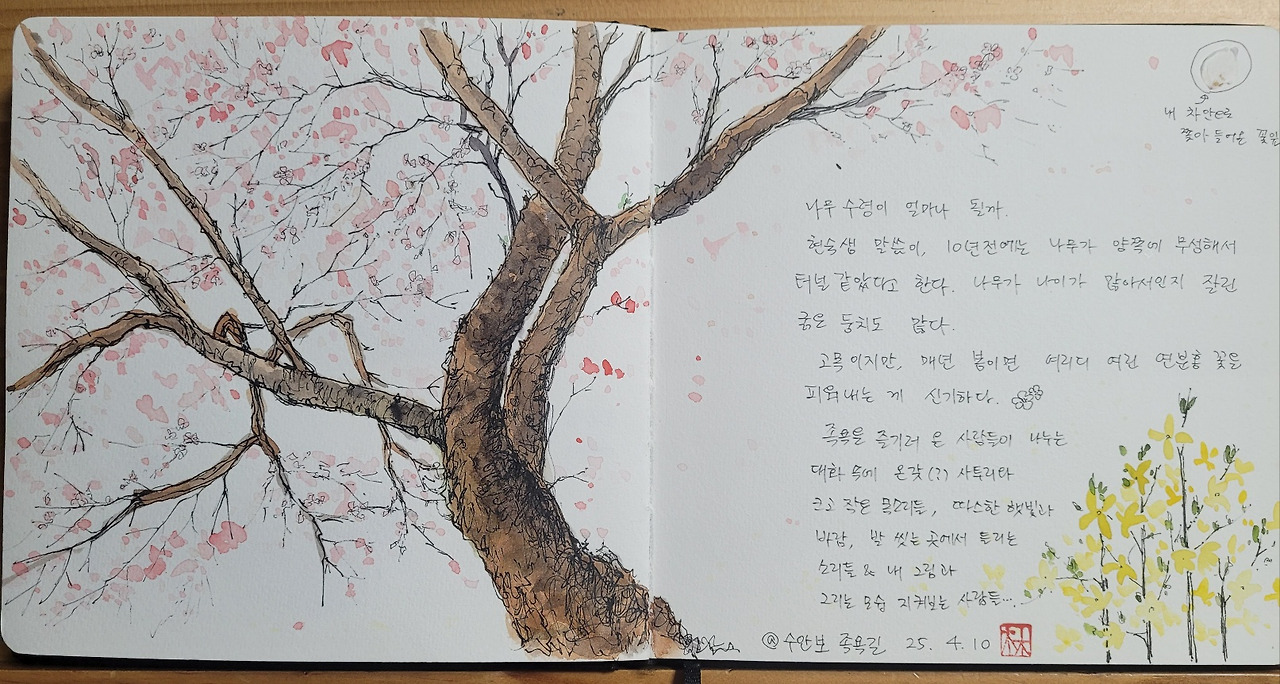 내 차안으로
쫓아 들어온 꽃잎
나무 수령이 얼마나 될까.
현숙샘 말씀이, 10년전에는 나무가 양쪽에 무성해서
터널 같았다고 한다. 나무가 나이가 많아서인지 잘린
굵은 둥치도 많다.
고목이지만, 매년 봄이면 여리디 여린 연분홍 꽃을
피워내는 게 신기하다.
족욕을 즐기러 온 사람들이 나누는
대화 속에 온갖(?) 사투리와
크고 작은 목소리들, 따스한 햇빛과
바람, 발 씻는 곳에서 들리는
소리들 & 내 그림과
그리는 모습 지켜보는 사람들...
@수안보 족욕길 25. 4. 10